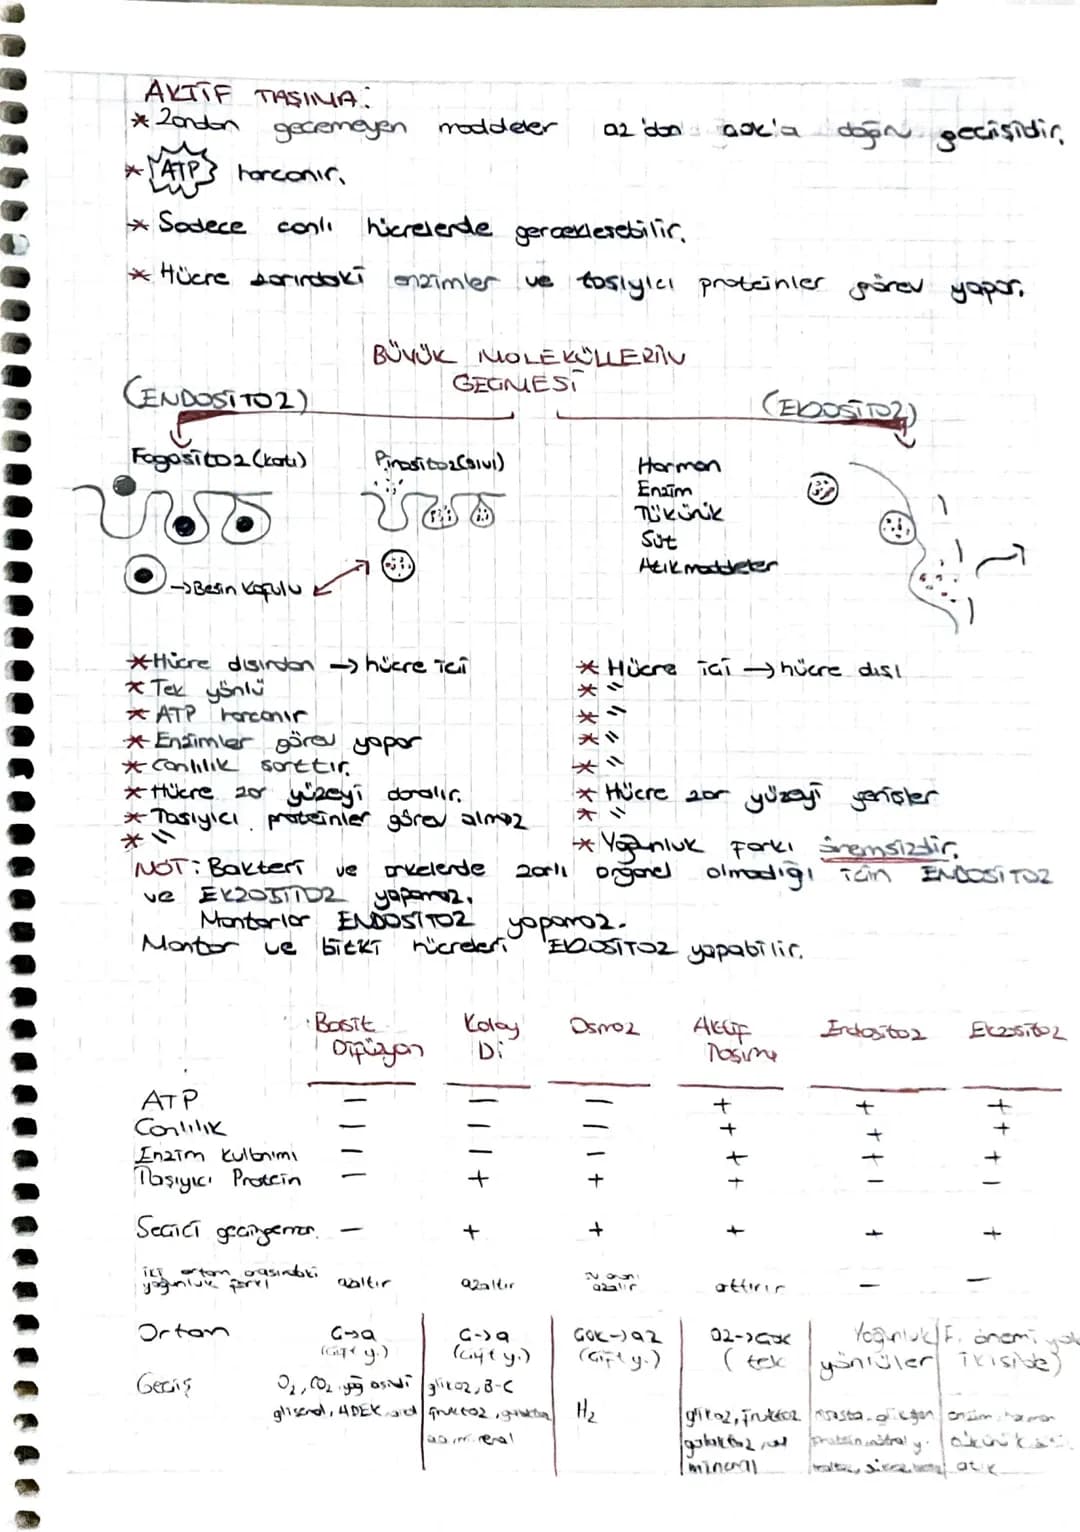 AKTİF TAŞIMA:
* Zardan geçemeyen maddeler az'dan çok'a doğru geçişidir.
* ATP harcanır.
* Sadece canlı hücrelerde gerçekleşebilir.
* Hücre zarındaki enzimler ve taşıyıcı proteinler görev yapar.
BÜYÜK MOLEKÜLLERİN
GEÇMESİ
(ENDOSİTOZ) (EKZOSİTOZ)
Fagositoz (katı) Pinositoz (sıvı)
Hormon
Enzim
Tükürük
Süt
Atık maddeler
→ Besin Kofulu
* Hücre dışından → hücre içi
* Tek yönlü
* ATP harcanır
* Enzimler görev yapar
* Canlılık şarttır.
* Hücre zar yüzeyi daralır.
* Taşıyıcı proteinler görev almaz
* "
* Hücre içi → hücre dışı
* "
* "
* "
* "
* Hücre zar yüzeyi genişler
* "
* Yoğunluk farkı önemsizdir.
NOT: Bakteri ve arkelerde zarlı organel olmadığı için ENDOSİTOZ
ve EKZOSİTOZ yapamaz.
Mantarlar ENDOSİTOZ yapamaz.
Mantar ve bitki hücreleri EKZOSİTOZ yapabilir.
Basit Difüzyon Kolay Di Osmoz Aktif Taşıma Endositoz Ekzositoz
ATP − − − + + +
Canlılık − − − + + +
Enzim Kullanımı − − − + + +
Taşıyıcı Protein − + + + − −
Seçici geçirgen zar − + + + + +
İki ortam arasındaki yoğunluk farkı azaltır azaltır azalır arttırır − −
Ortam Ç→a (çift y.) Ç→a (çift y.) Çok→az (çift y.) az→Çok (tek Yoğunluk F. önemi yok yönlüler ikiside)
Geçiş O2, CO2 yağ asidi gliserol, ADEK glikoz, B-C fruktoz, galaktoz mineral H2 glikoz, fruktoz galaktoz mineral enzim hormon atık